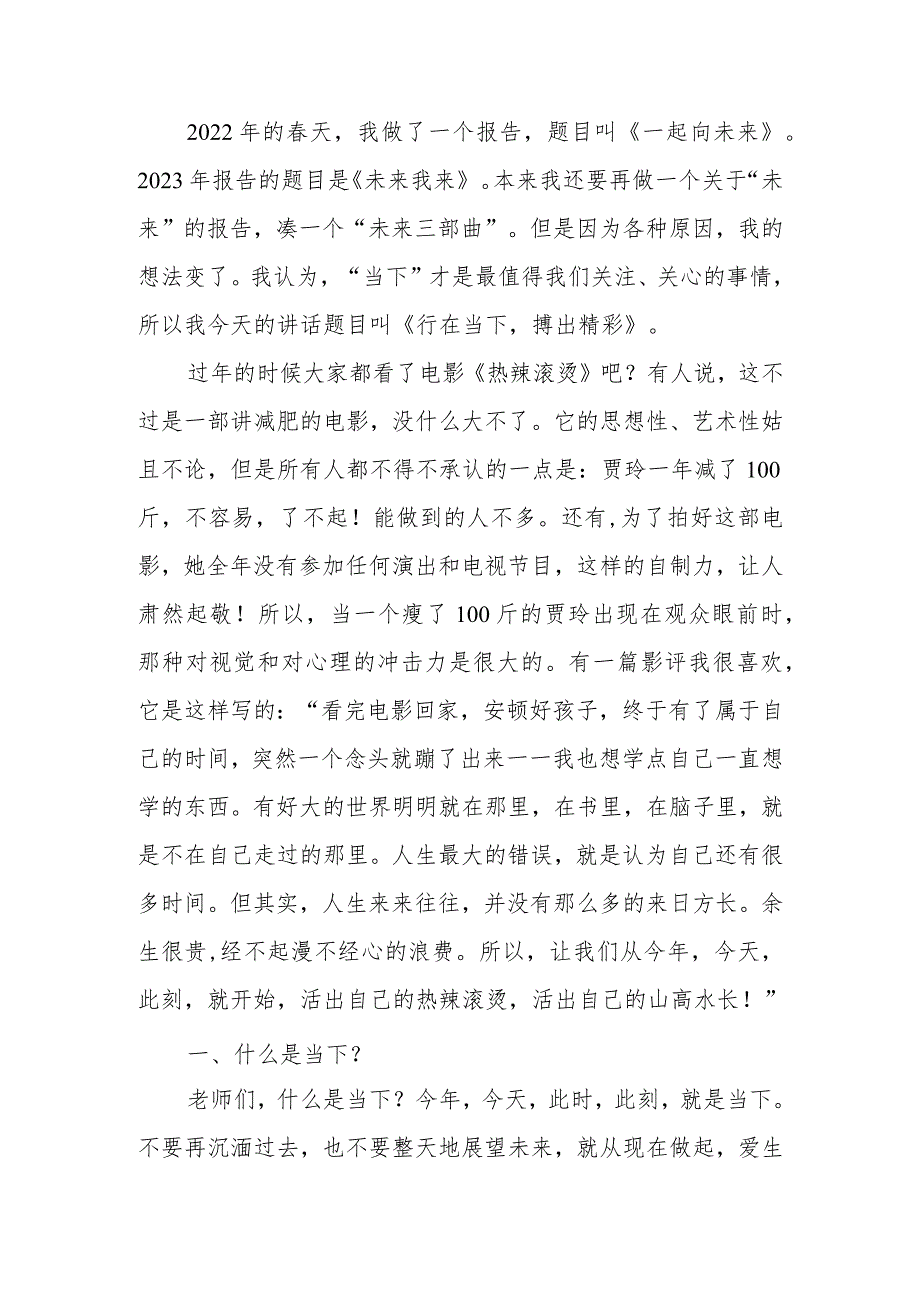 2022 年的春天，我做了一个报告，题目叫《一起向未来》。
2023 年报告的题目是《未来我来》。本来我还要再做一个关于“未
来”的报告，凑一个“未来三部曲”。但是因为各种原因，我的
想法变了。我认为，“当下”才是最值得我们关注、关心的事情，
所以我今天的讲话题目叫《行在当下，搏出精彩》。
过年的时候大家都看了电影《热辣滚烫》吧？有人说，这不
过是一部讲减肥的电影，没什么大不了。它的思想性、艺术性姑
且不论，但是所有人都不得不承认的一点是：贾玲一年减了 100
斤，不容易，了不起！能做到的人不多。还有,为了拍好这部电
影，她全年没有参加任何演出和电视节目，这样的自制力，让人
肃然起敬！所以，当一个瘦了 100 斤的贾玲出现在观众眼前时，
那种对视觉和对心理的冲击力是很大的。有一篇影评我很喜欢，
它是这样写的：“看完电影回家，安顿好孩子，终于有了属于自
己的时间，突然一个念头就蹦了出来一一我也想学点自己一直想
学的东西。有好大的世界明明就在那里，在书里，在脑子里，就
是不在自己走过的那里。人生最大的错误，就是认为自己还有很
多时间。但其实，人生来来往往，并没有那么多的来日方长。余
生很贵,经不起漫不经心的浪费。所以，让我们从今年，今天，
此刻，就开始，活出自己的热辣滚烫，活出自己的山高水长！”
一、什么是当下？
老师们，什么是当下？今年，今天，此时，此刻，就是当下。
不要再沉湎过去，也不要整天地展望未来，就从现在做起，爱生